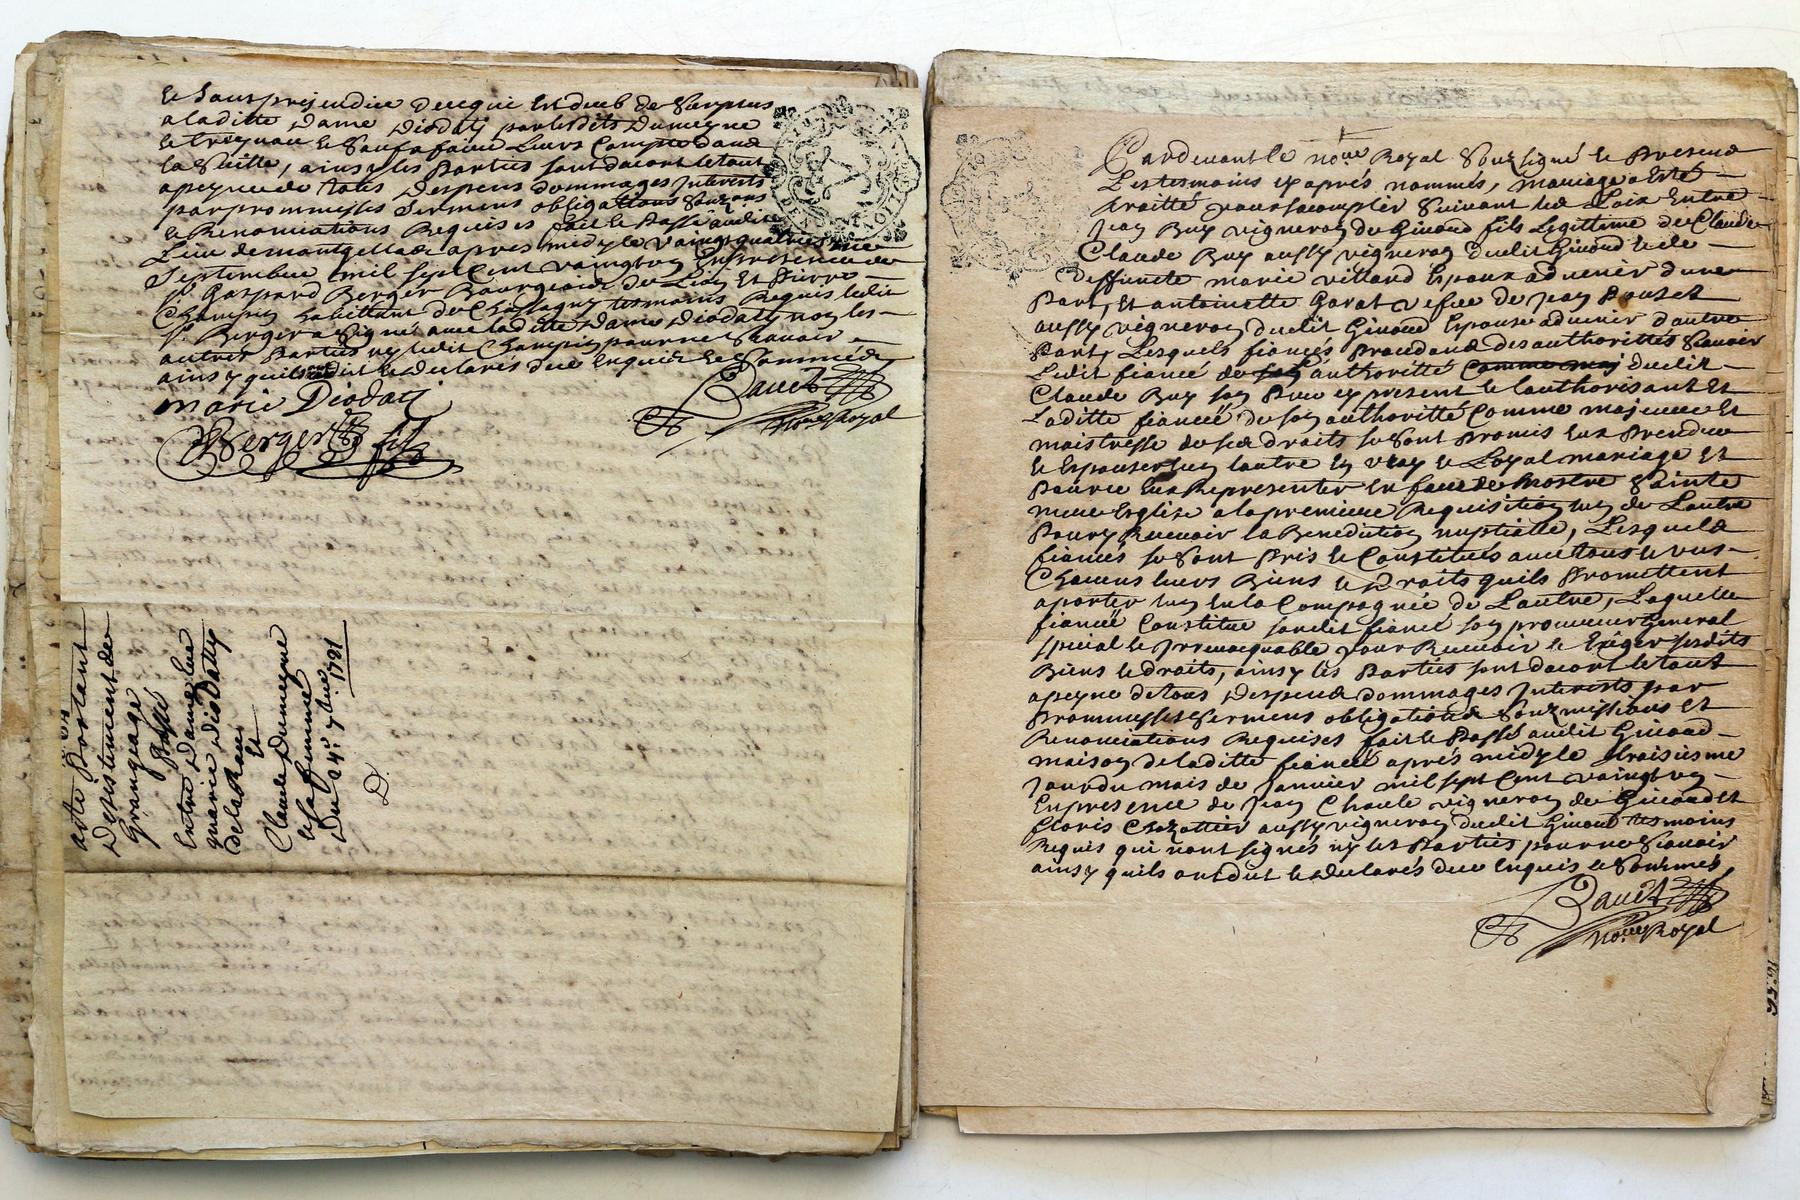 et sans prejudice de ce qui est deub de surplus
a laditte dame Diodaty par lesdits Dumeyne
le tout sauf a faire leurs compte dans
la suitte, ainsy les parties sont dacort le tout
a peyne de tous despens dommages Interests
par prommesses sermens obligations
et Renonciations Requises fait et Passé audit
Lieu de apres midy le vaingt quatriesme
Septembre mil sept cent vaingt un En presence de
Sr. Gaspard Berger Bourgeois de Lion Et Pierre
habittant de tesmoins Requis ledit
Sr. Berger a signé avec laditte dame Diodaty non les
autres Parties ny ledit pour ne sçauoir
ainsy quils ont dit et declarés de ce enquis et sommés
marie Diodati
Berger fils
Noᵗʳᵉ Royal
acte Portant
Desistement de
Grangeage
Passé
Entre Dame
marie Diodaty
Et
Claude Dumeyne
et sa femme
Du 24e 7bre 1721
D.
Pardeuant le noᵗʳᵉ Royal souzsigné et presens
Les tesmoins cy aprés nommés, mariage a Esté
traitté pour sacomplir suiuant les Loix Entre
Jean Buy vigneron de Giuord fils Legittime de Claude
Claude Buy aussy vigneron dudit Giuord et de
deffuncte marie villard Epoux aduenir dune
Part, Et antoinette Garat vefue de Jean Pouzet
aussy vigneron dudit Giuord Epouse aduenir dautre
Part, Lesquels fiancés Procedans des authorittés sçauoir
Ledit fiancé de authoritté dudit
Claude Buy son Pere cy present et lauthorisant Et
Laditte fiancée de son authoritté comme majeure Et
maistresse de ses droits se sont Promis Eux Prendre
et Epouser lun lautre En vray et Loyal mariage Et
pour ce Eux Representer En face de nostre sainte
mere Esglise a la premiere Requisition lun de Lautre
Pour y Receuoir la Benediction nuptialle, Lesquels
fiancés se sont Pris et Constitués auec tous et vns
Chacuns leurs Biens et Droits quils Promettent
aporter lun En la Compagnée de Lautre, Laquelle
fiancée Constitue sondit fiancé son procureur General
special et Irreuocquable pour Receuoir et Exiger sesdits
Biens et droits, ainsy les Parties sont dacort le tout
a peyne de tous Despens dommages Interests par
Prommesses sermens obligations souzmissions et
Renonciations Requises fait et Passé audit Giuord
maison de laditte fiancée aprés midy le traisiesme
Jour du mois de Januier mil sept Cent vaingt un
En presence de Jean vigneron de Giuord Et
floris aussy vigneron dudit Giuord tesmoins
Requis qui nont signés ny les Parties pour ne sçauoir
ainsy quils ont dit et declarés de ce enquis et sommés
Noᵗʳᵉ Royal